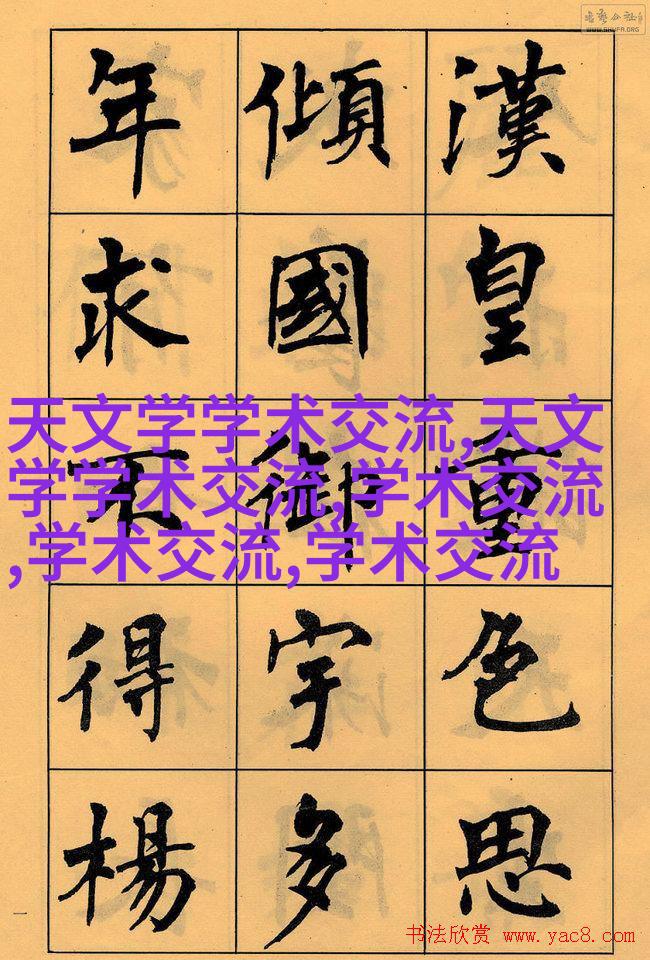 漢皇重色思
傾國御宇多
年求不得楊
天文学学术交流,天文
学学术交流,学术交流
,学术交流,学术交流
WWW.SHUFA.ORG
一
书法欣赏 www.yac8.com